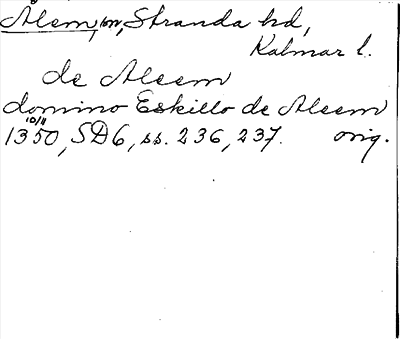 Ålem, sn, Stranda hd,
Kalmar l.
de Aleem
domino Eskillo de Aleem
1350 10/11, SD6, ss. 236, 237. orig.